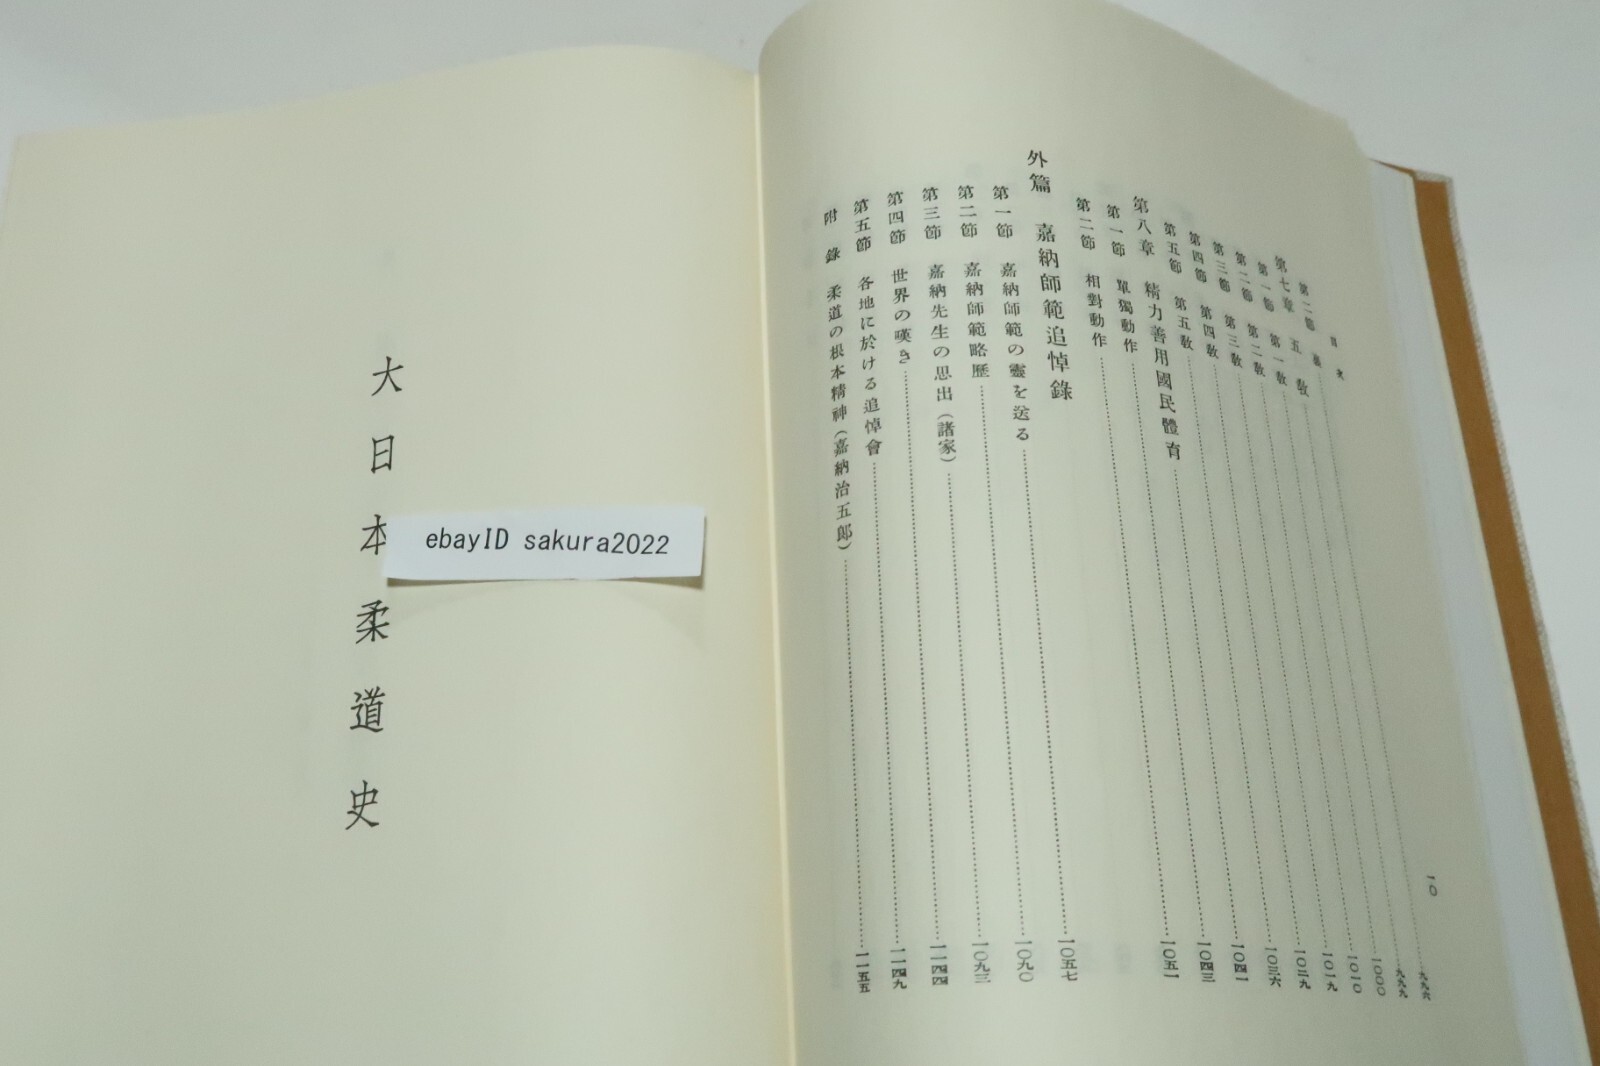 目次
一〇
第二節 裏 九九六
第七章 五教 九九九
第一節 第一教 一〇〇〇
第二節 第二教 一〇一〇
第三節 第三教 一〇一九
第四節 第四教 一〇二九
第五節 第五教 一〇三六
第八章 精力善用國民體育 一〇四一
第一節 單獨動作 一〇四三
第二節 相對動作 一〇五一
外篇 嘉納師範追悼錄
第一節 嘉納師範の靈を送る 一〇五七
第二節 嘉納師範略歴 一〇九〇
第三節 嘉納先生の思出（諸家） 一〇九三
第四節 世界の嘆き 一一四四
第五節 各地に於ける追悼會 一一四九
附錄 柔道の根本精神（嘉納治五郎） 一一五五
大日本柔道史
ebayID sakura2022